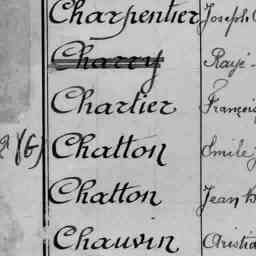 Charpentier Joseph
Charry Rayé
Chartier François
Chatton Emile
Chatton Jean
Chauvin